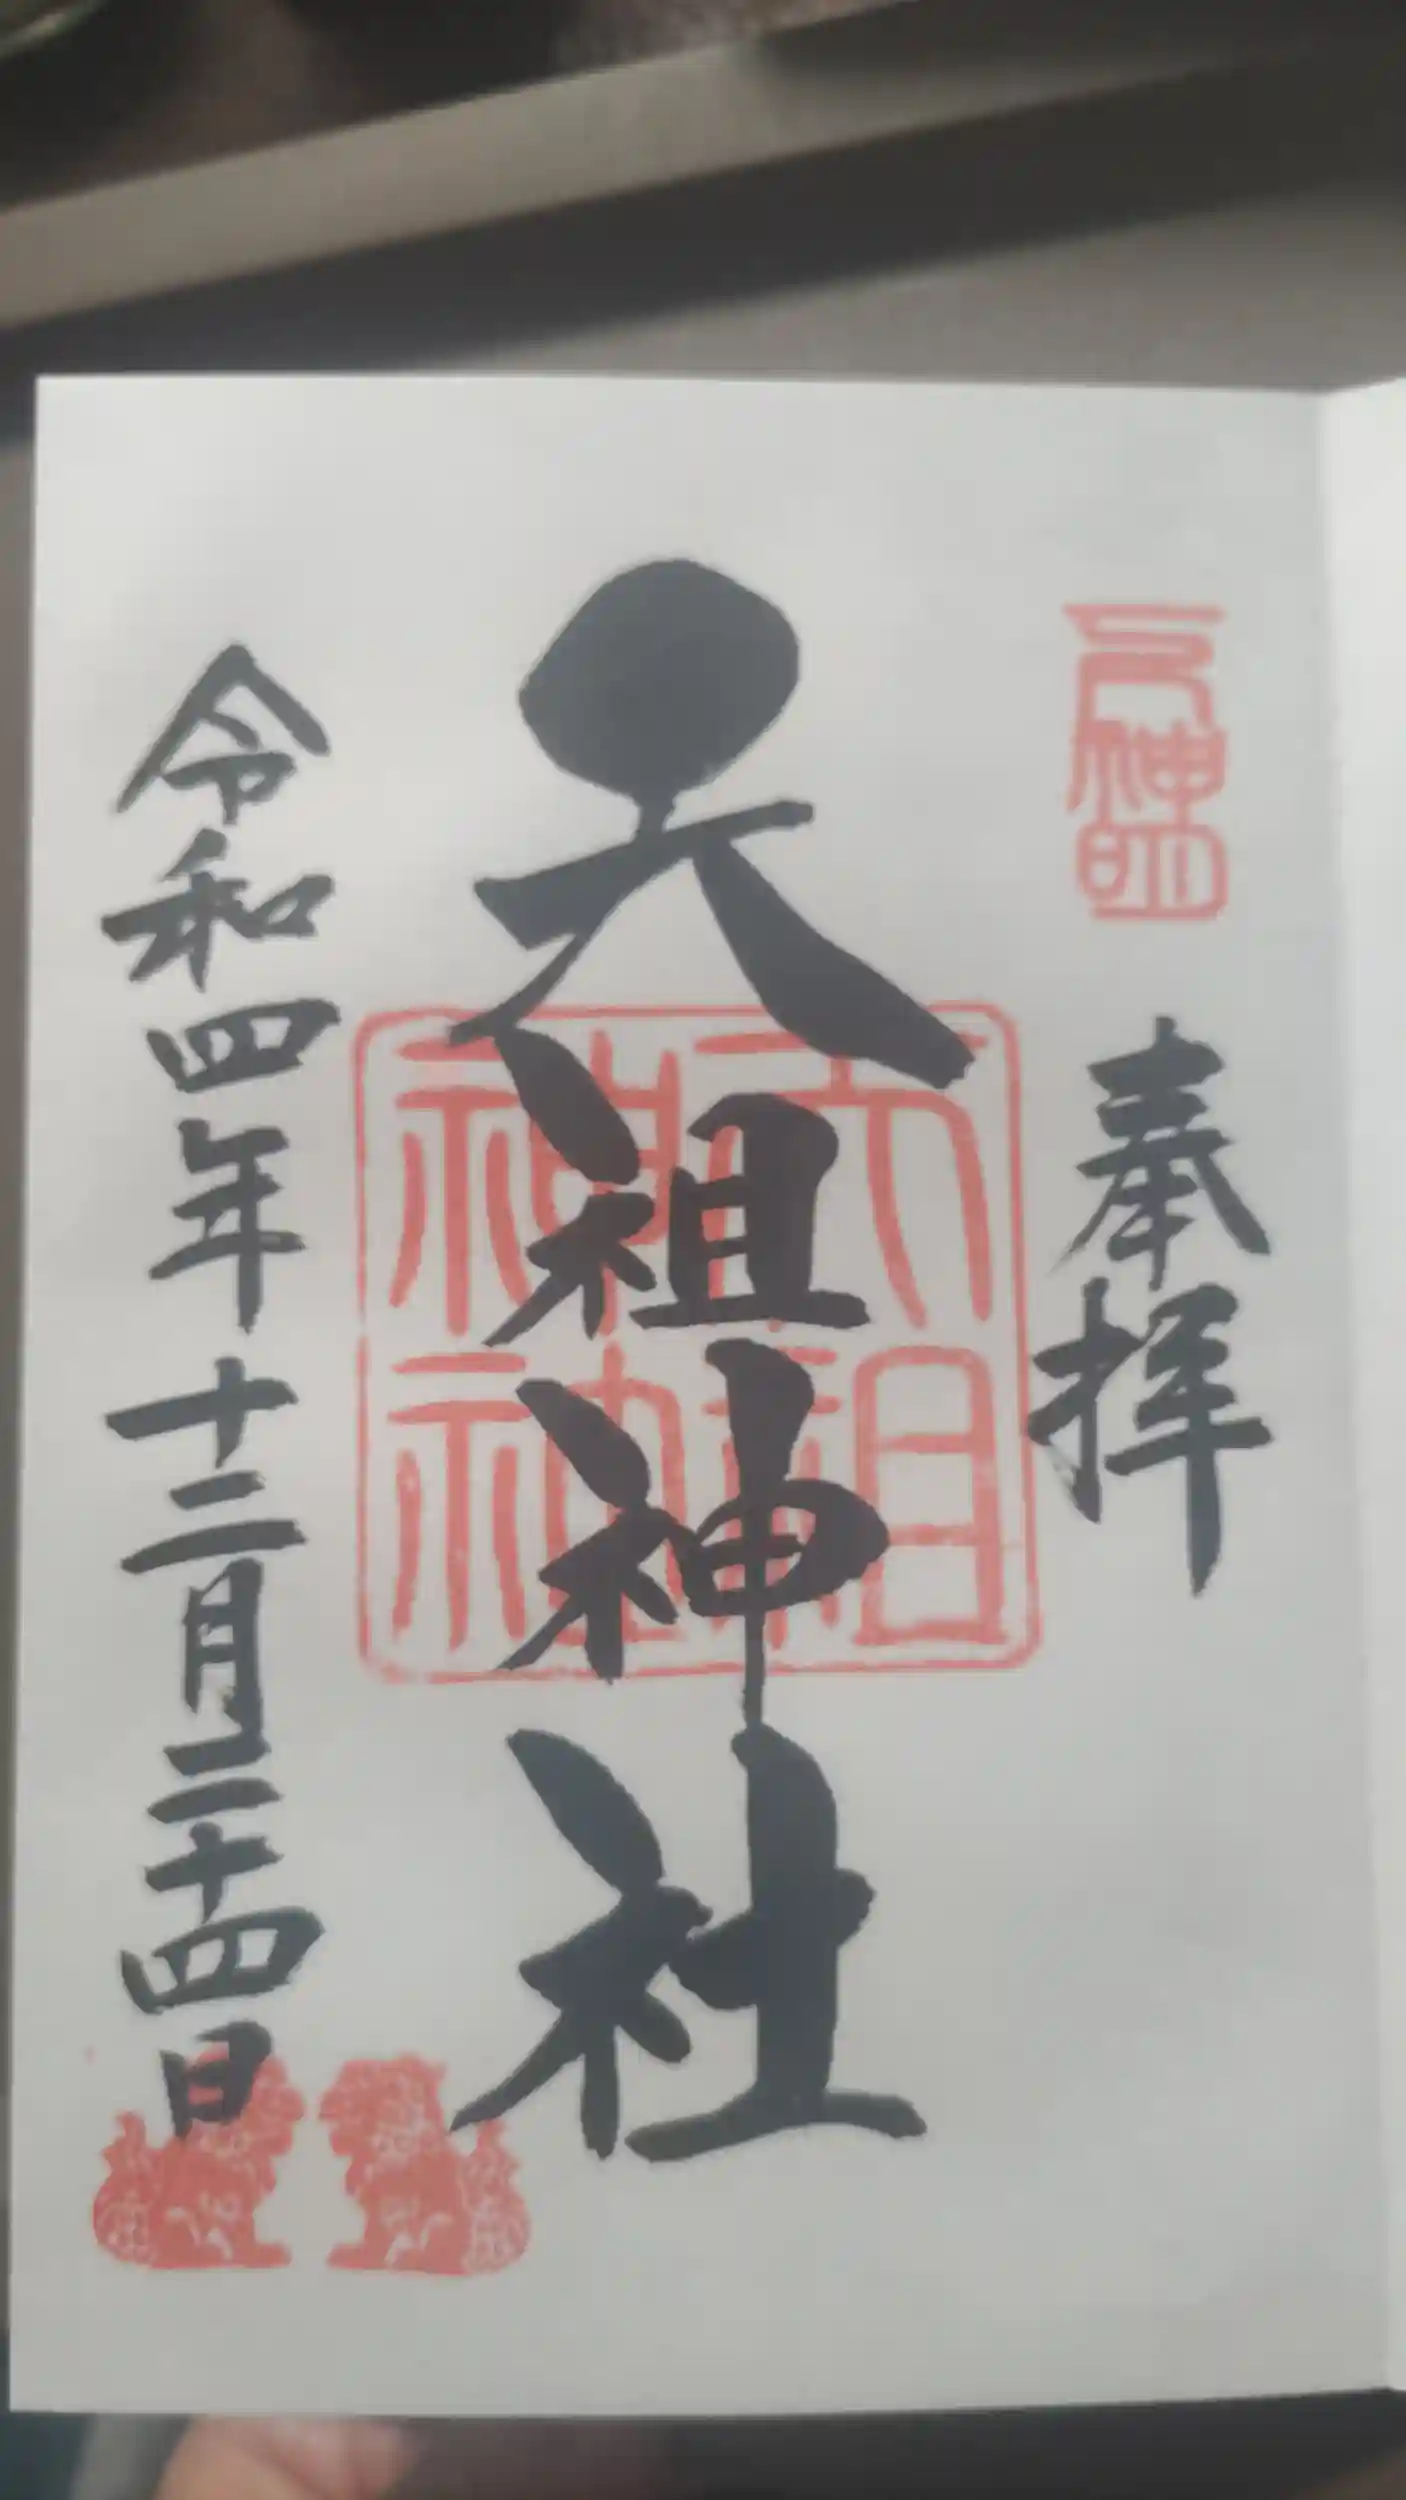 奉拝
天祖神社
天祖
神社
令和四年十二月二十四日